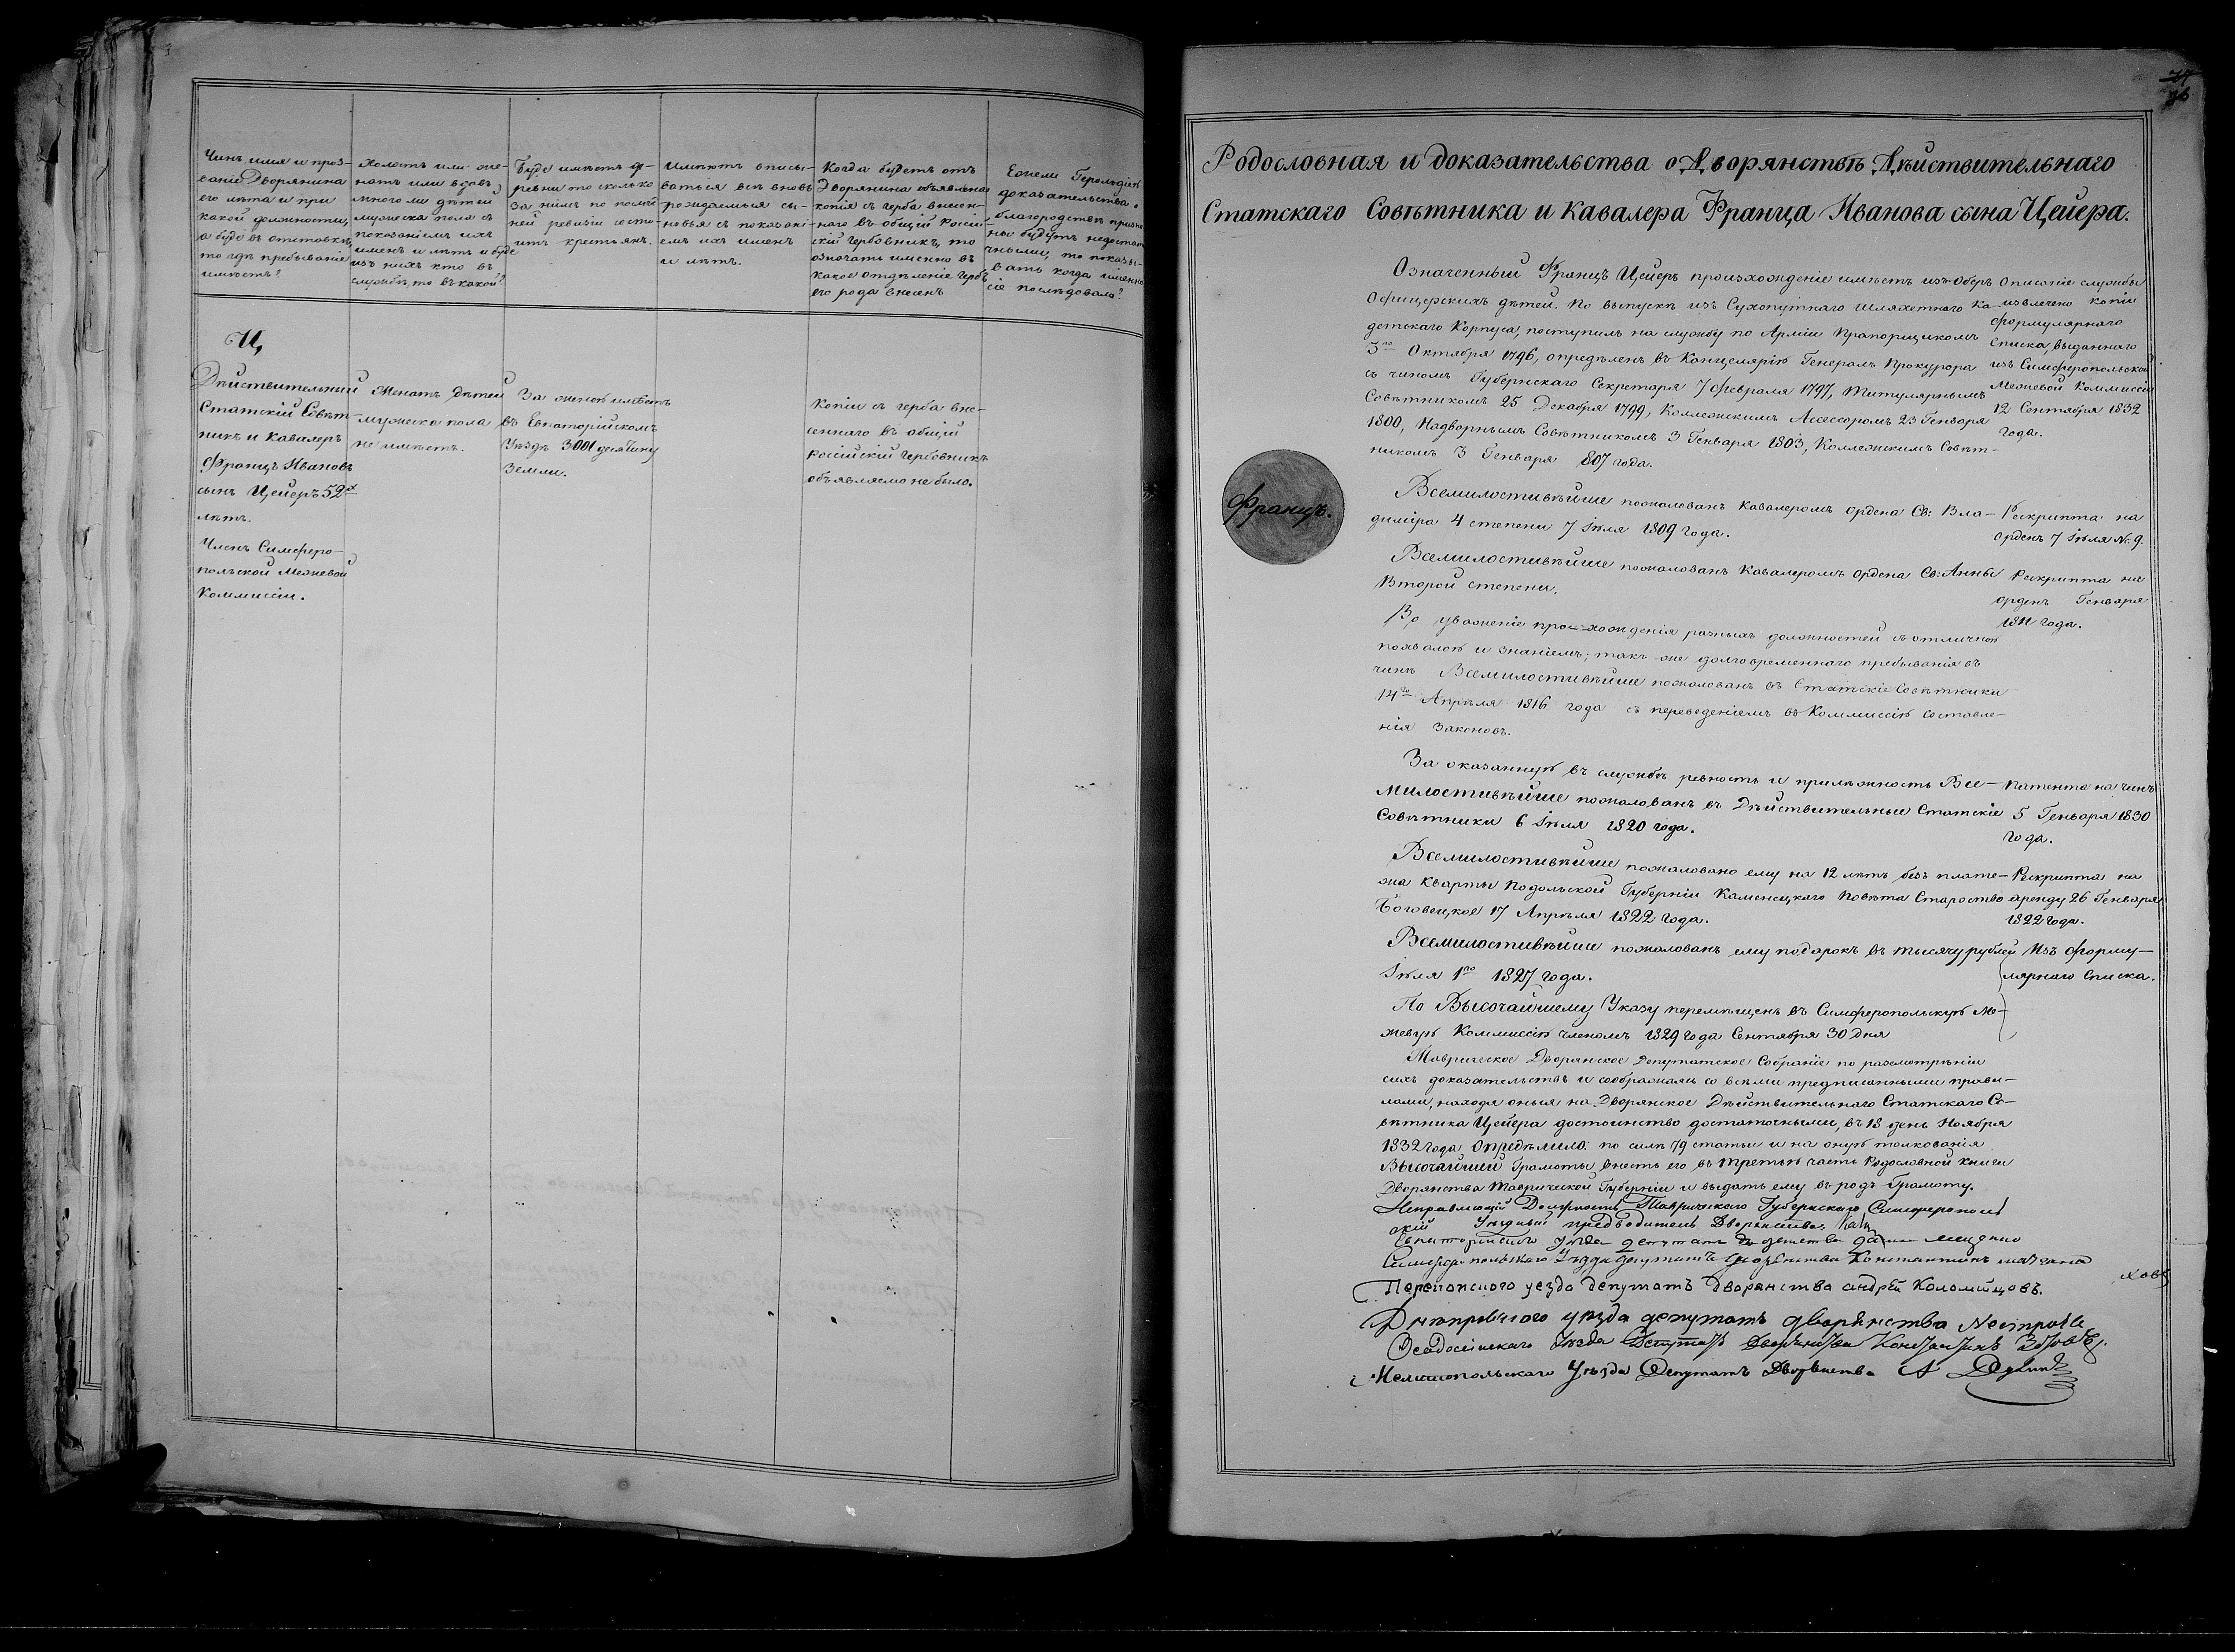 Чинъ имя и проз-
ваніе Дворянина
его лѣта и при
какой должности,
а буде въ отставкѣ,
то гдѣ пребываніе
имѣетъ?
Холостъ или же-
натъ или вдовъ,
много ли дѣтей
мужеска пола съ
показаніемъ ихъ
именъ и лѣтъ и буде
изъ нихъ кто въ
службѣ, то въ какой?
Буде имѣетъ де-
ревни то сколько
за нимъ по послѣд-
ней ревизіи состо-
итъ крестьянъ.
Имѣютъ вписы-
ваться всѣ вновь
рождаемыя сы-
новья съ показані-
емъ ихъ именъ
и лѣтъ.
Когда будетъ отъ
Дворянина объявлена
копія съ герба внесен-
наго въ общій Россій-
скій гербовникъ, то
означать именно въ
какое отдѣленіе гербъ
его рода внесенъ
Ежели Герольдіею
доказательства о
благородствѣ призна-
ны будутъ недостато-
чными, то показы-
вать когда именно
сіе послѣдовало?
Ц,
Дѣйствительный
Статскій Совѣт-
никъ и Кавалеръ
Францъ Ивановъ
сынъ Цейеръ 52х
лѣтъ.
Членъ Симферо-
польской Межевой
Коммиссіи.
Женатъ дѣтей
мужеска пола
не имѣетъ.
За женою имѣетъ
въ Евпаторійскомъ
Уѣздѣ 3001 десятину
Земли.
Копіи съ герба вне-
сеннаго въ общій
россійскій гербовникъ
объявляемо не было.
76
Родословная и доказательства о Дворянствѣ Дѣйствительнаго
Статскаго Совѣтника и Кавалера Франца Иванова сына Цейера.
Францъ.
Означенный Францъ Цейеръ произхожденіе имѣетъ изъ Оберъ
Офицерскихъ дѣтей. По выпускѣ изъ Сухопутнаго Шляхетнаго Ка-
детскаго Корпуса, поступилъ на службу по Арміи Прапорщикомъ
3го Октября 1796, опредѣленъ въ Канцелярію Генералъ Прокурора
съ чиномъ Губернскаго Секретаря 7 февраля 1797, Титулярнымъ
Совѣтникомъ 25 Декабря 1799, Коллежскимъ Ассесоромъ 23 Генваря
1800, Надворнымъ Совѣтникомъ 3 Генваря 1803, Коллежскимъ Совѣт-
никомъ 3 Генваря 807 года.
Описаніе службы
извлечено копіи
формулярнаго
Списка, выданнаго
изъ Симферопольской
Межевой Коммиссіи
12 Сентября 1832
года.
Всемилостивѣйше пожалованъ Кавалеромъ ордена Св: Вла-
диміра 4 степени 7 Іюля 1809 года.
Рескрипта на
орденъ 7 Іюля № 9.
Всемилостивѣйше пожалованъ Кавалеромъ Ордена Св: Анны
Второй степени.
Рескрипта на
орденъ Генваря
1811 года.
Во уваженіе прохожденія разныхъ должностей съ отличною
похвалою и знаніемъ; такъ же долговременнаго пребыванія въ
чинѣ Всемилостивѣйше пожалованъ въ Статскіе Совѣтники
14го Апрѣля 1816 года съ переведеніемъ въ Коммиссію составле-
нія Законовъ.
За оказанную въ службѣ ревность и прилѣжность Все-
Милостивѣйше пожалованъ въ Дѣйствительные Статскіе
Совѣтники 6 Іюля 1820 года.
Патента на чинъ
5 Генваря 1830
года.
Всемилостивѣйше пожаловано ему на 12 лѣтъ безъ плате-
жа Кварты Подольской Губерніи Каменецкаго Повѣта Староство
Боговецкое 17 Апрѣля 1822 года.
Рескрипта на
аренду 26 Генваря
1822 года.
Всемилостивѣйше пожалованъ ему подарокъ въ тысячу рублей
Іюля 1го 1827 года.
Изъ форму-
лярнаго Списка.
По Высочайшему Указу перемѣщенъ въ Симферопольскую Ме-
жевую Коммиссію членомъ 1829 года Сентября 30 дня
Таврическое Дворянское Депутатское Собраніе по разсмотрѣніи
сихъ доказательствъ и соображаясь со всѣми предписанными прави-
лами, находя оныя на Дворянское Дѣйствительнаго Статскаго Со-
вѣтника Цейера достоинство достаточными, въ 18 день Ноября
1832 года Опредѣлило: по силѣ 79 статьи и на оную толкованія
Высочайшей Грамоты внесть его въ третью часть Родословной книги
Дворянства Таврической Губерніи и выдать ему въ родъ Грамоту.
Исправляющій Должность Таврическаго Губернскаго Симферополь
скій Уѣздный предводитель Дворянства
Евпаторійскаго уѣзда депутатъ дворянства
Симферопольскаго Уѣзда депутатъ дворянства Константинъ
Перекопскаго уезда депутатъ дворянства андрей Коломійцовъ.
Днѣпровскаго уѣзда депутатъ дворянства
Феодосійскаго Уѣзда Депутатъ Дворянства Константинъ
Мелитопольскаго Уѣзда Депутатъ Дворянства А